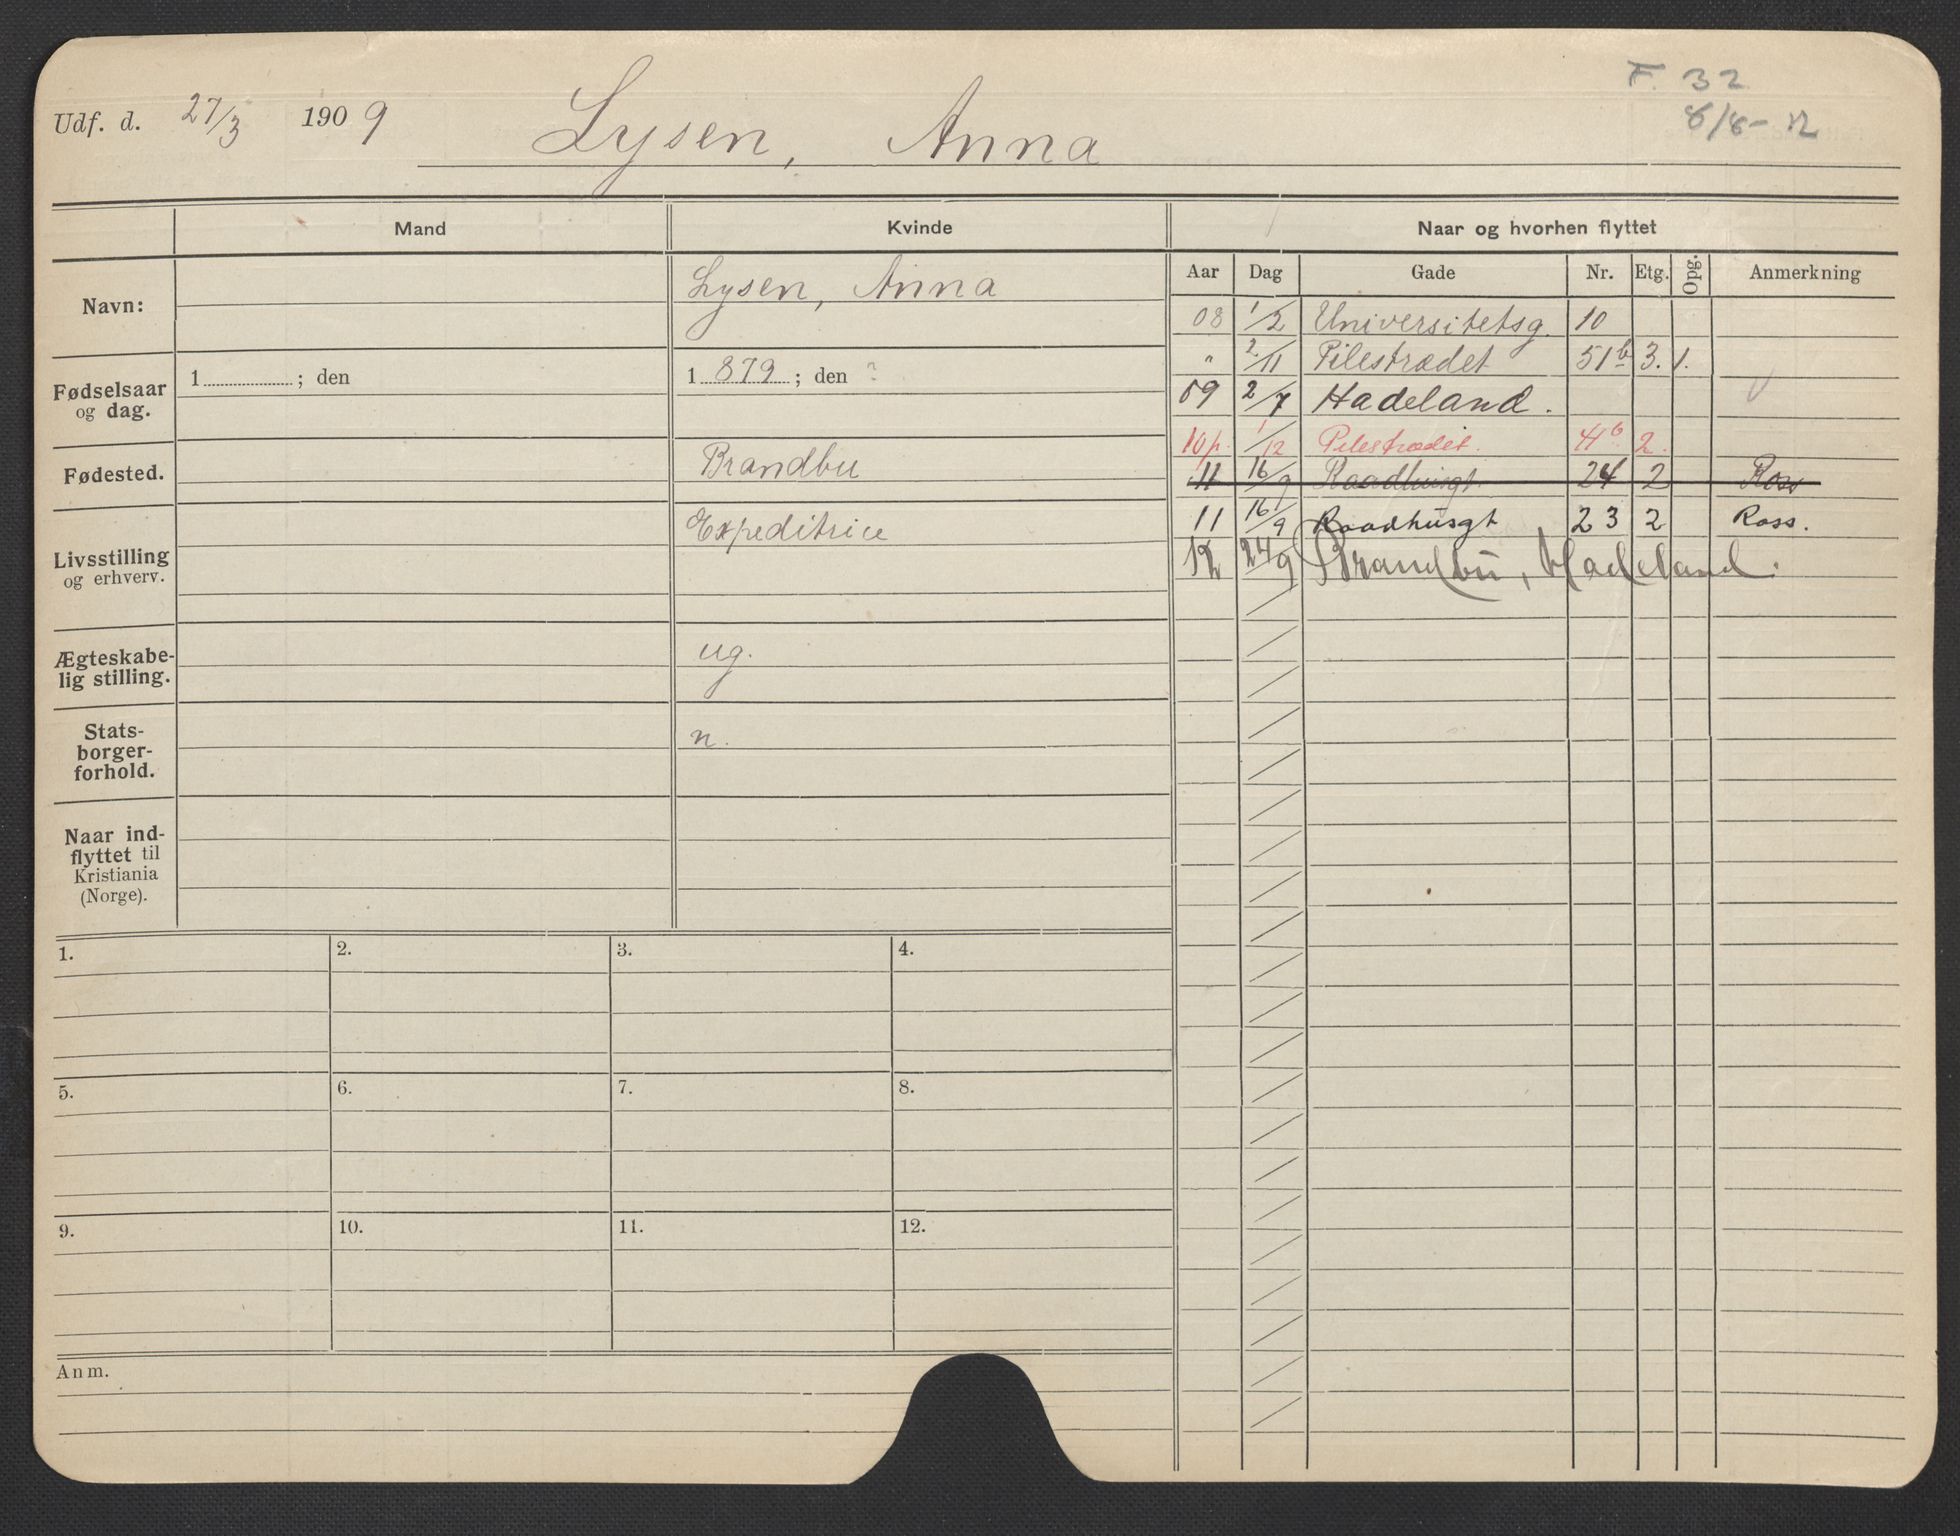 F. 32
8/8-12
Udf. d. 27/3 1909 Lysen, Anna
Mand Kvinde Naar og hvorhen flyttet
Aar Dag Gade Nr. Etg. Opg. Anmerkning
Navn: Lysen, Anna
Fødselsaar og dag. 1 ; den 1 879 ; den ?
Fødested. Brandbu
Livsstilling og erhverv. Expeditrice
Ægteskabe-
lig stilling. ug.
Stats-
borger-
forhold. n.
Naar ind-
flyttet til
Kristiania
(Norge).
08 1/2 Universitetsg. 10
" 2/11 Pilestrædet 51b 3. 1.
09 2/7 Hadeland.
10 1/12 Pilestrædet. 2.
11 16/9 Raadhusgt. 24 2 Ross
11 16/9 Raadhusgt 23 2 Ross.
12 24/9 Brandbu, Hadeland.
1. 2. 3. 4.
5. 6. 7. 8.
9. 10. 11. 12.
Anm.